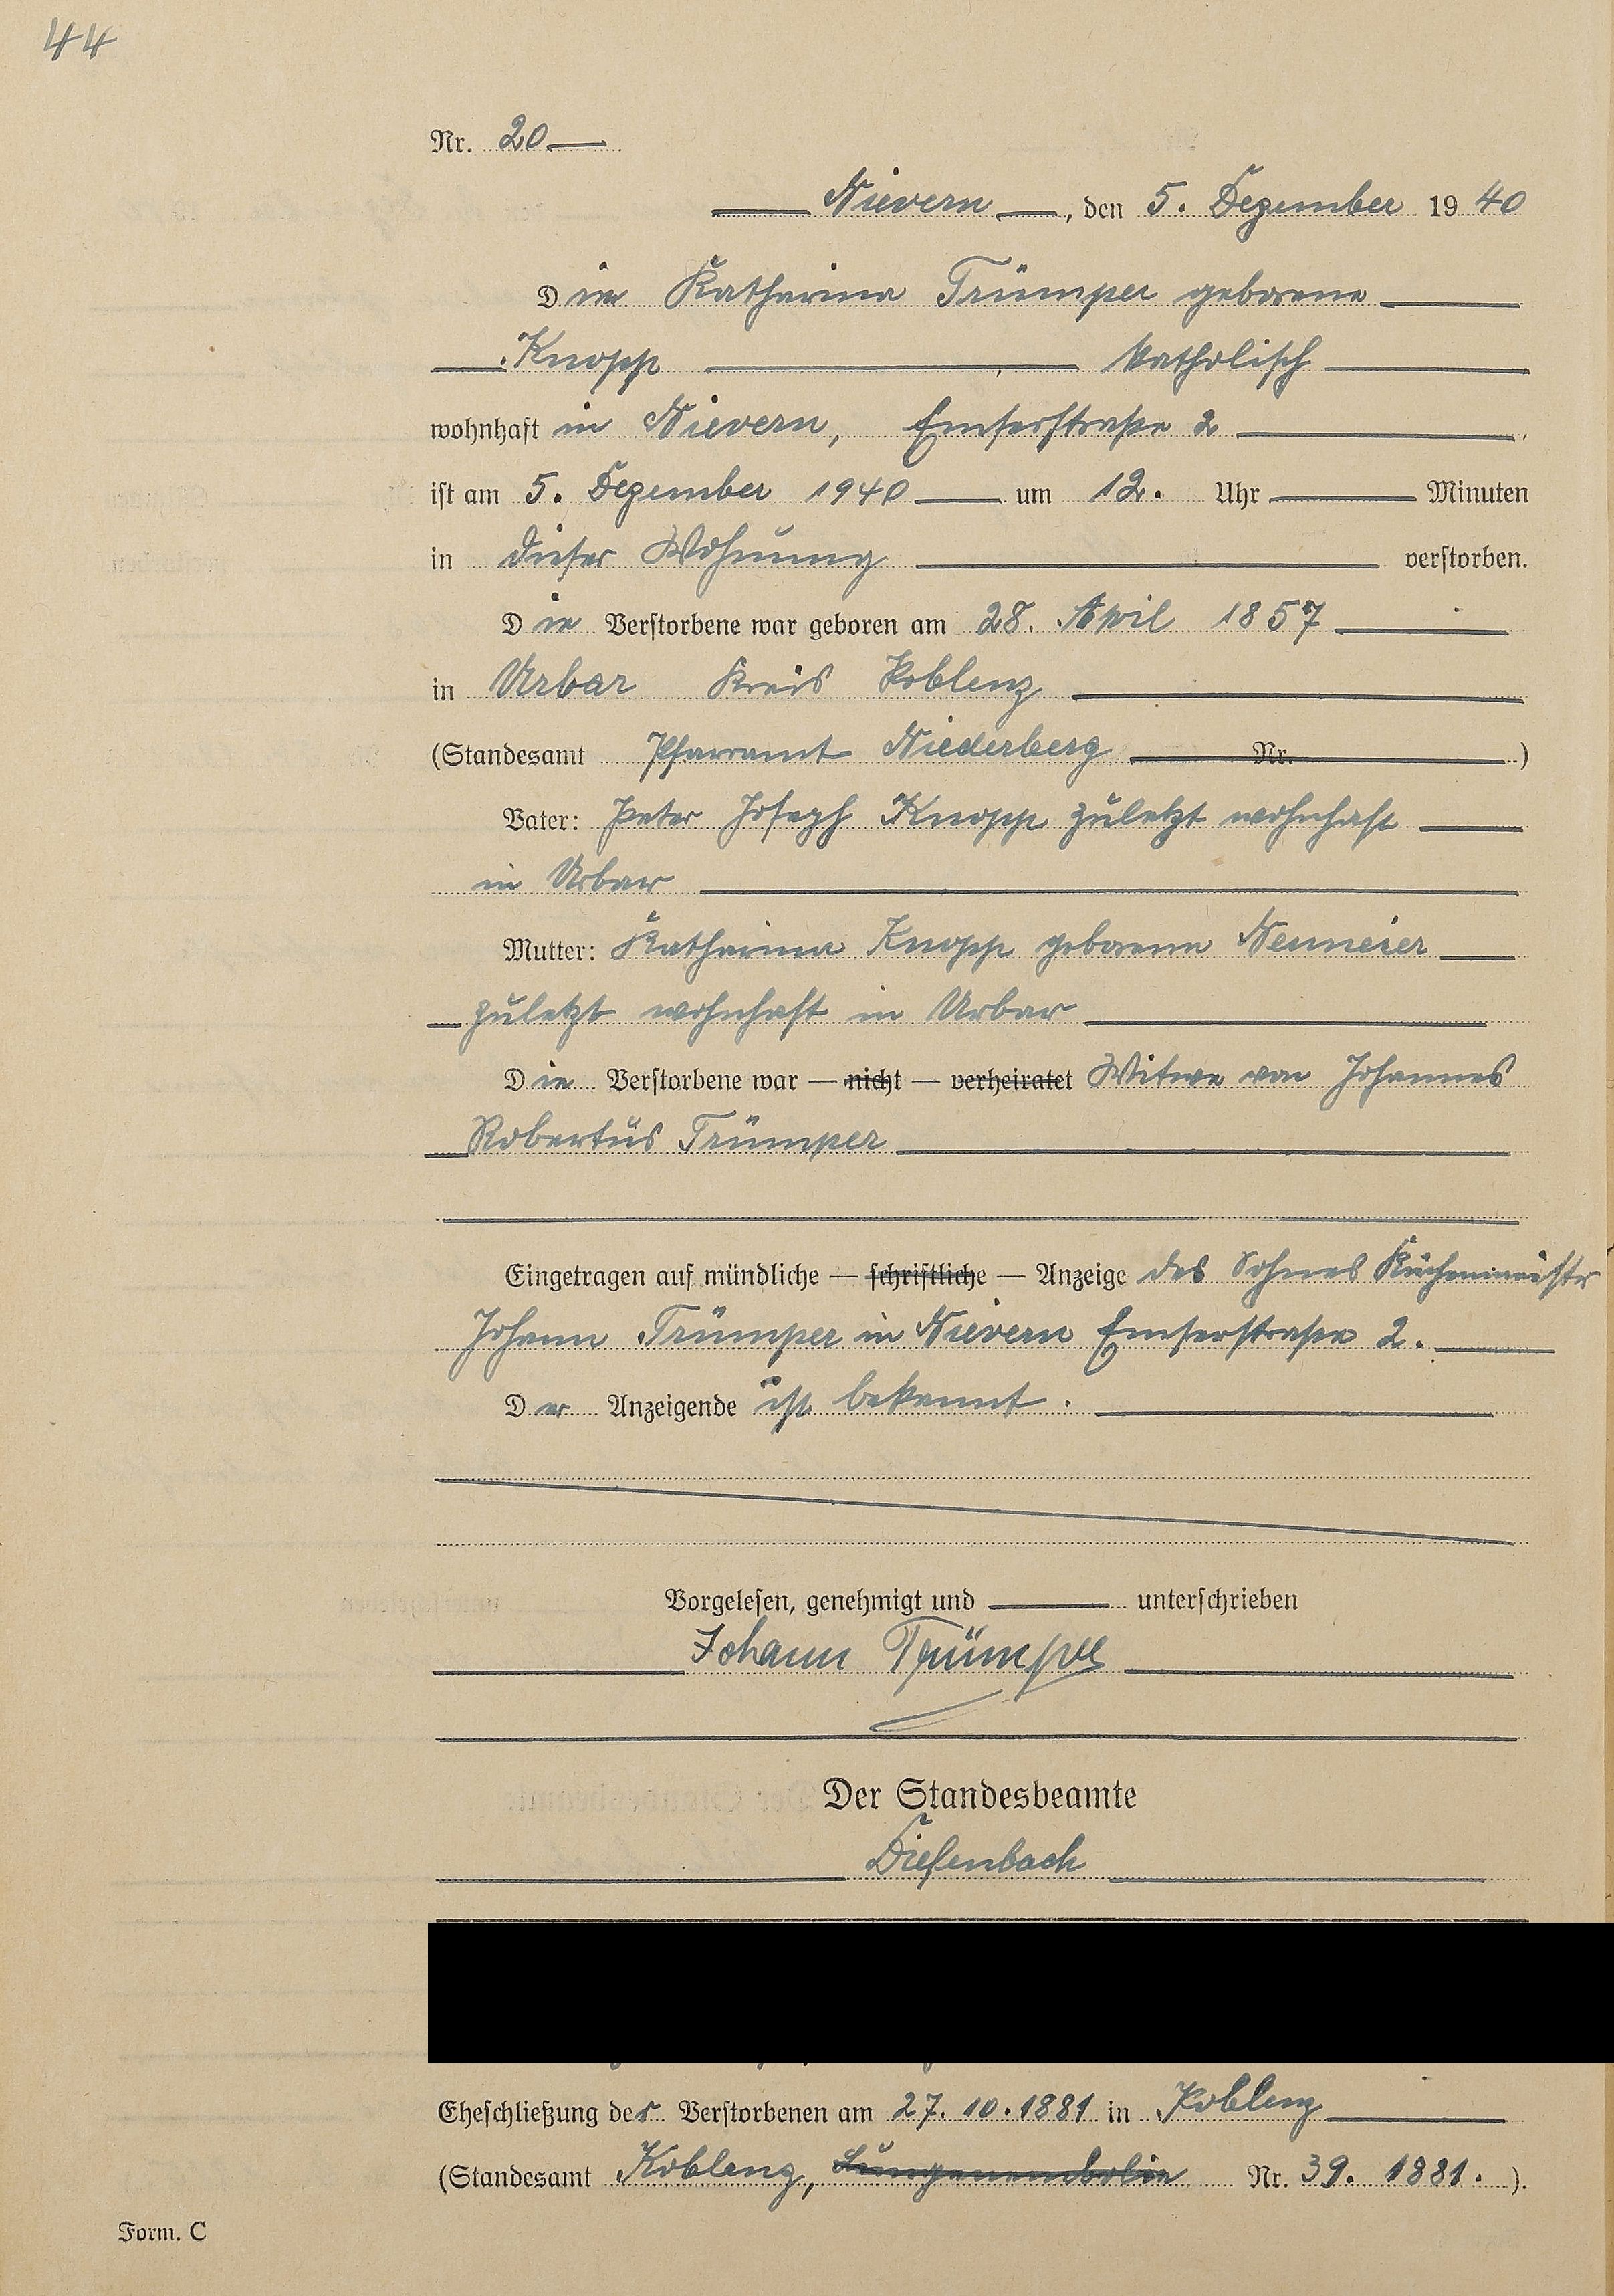 44
Nr. 20
Nievern, den 5. Dezember 1940
Die Katharina Trümper geborene
Knopp katholisch
wohnhaft in Nievern, Emserstraße 2
ist am 5. Dezember 1940 um 12. Uhr Minuten
in dieser Wohnung verstorben.
Die Verstorbene war geboren am 28. April 1857
in Urbar Kreis Koblenz
(Standesamt Pfarramt Niederberg Nr. )
Vater: Peter Joseph Knopp zuletzt wohnhaft
in Urbar
Mutter: Katharina Knopp geborene Neumeier
zuletzt wohnhaft in Urbar
Die Verstorbene war — nicht — verheiratet Witwe von Johannes
Robertus Trümper
Eingetragen auf mündliche — schriftliche — Anzeige des Sohnes Küchenmeister
Johann Trümper in Nievern Emserstraße 2.
Der Anzeigende ist bekannt.
Vorgelesen, genehmigt und unterschrieben
Johann Trümper
Der Standesbeamte
Diefenbach
Eheschließung der Verstorbenen am 27. 10. 1881 in Koblenz
(Standesamt Koblenz, Lungenembolie Nr. 39. 1881. ).
Form. C